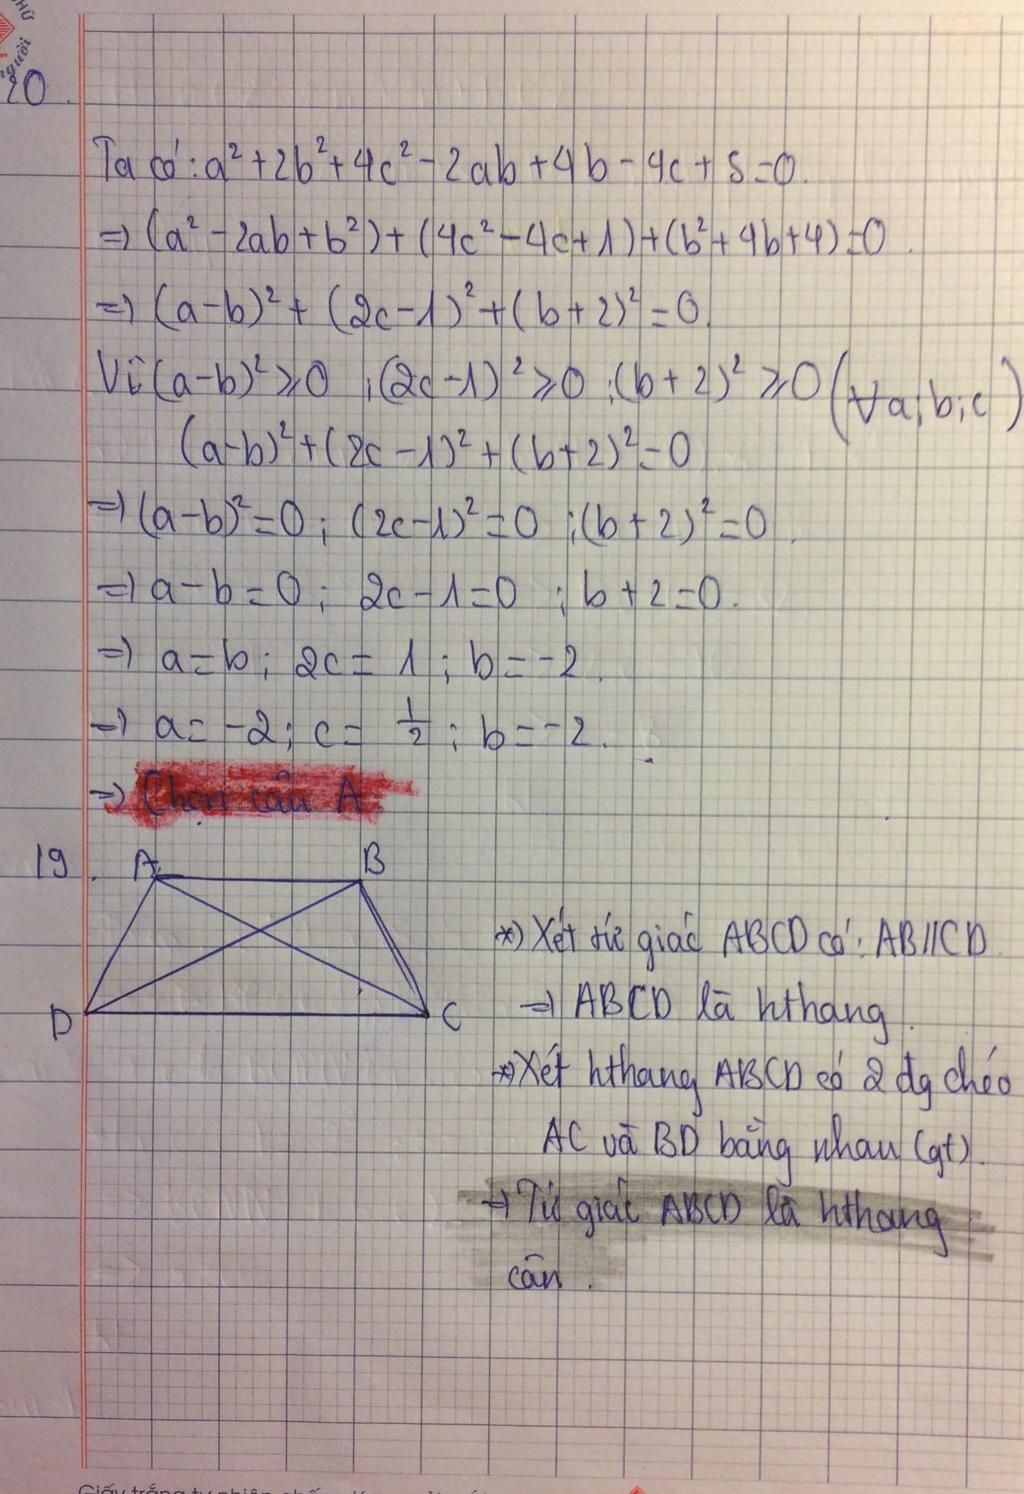 CHỮ
người
20.
Ta có: a² + 2b² + 4c² - 2ab + 4b - 4c + 5 = 0.
=> (a² - 2ab + b²) + (4c² - 4c + 1) + (b² + 4b + 4) = 0.
=> (a - b)² + (2c - 1)² + (b + 2)² = 0.
Vì (a - b)² ≥ 0 ; (2c - 1)² ≥ 0 ; (b + 2)² ≥ 0 (∀a; b; c)
(a - b)² + (2c - 1)² + (b + 2)² = 0
=> (a - b)² = 0 ; (2c - 1)² = 0 ; (b + 2)² = 0.
=> a - b = 0 ; 2c - 1 = 0 ; b + 2 = 0.
=> a = b ; 2c = 1 ; b = -2.
=> a = -2 ; c = 1/2 ; b = -2.
=> Chọn câu A.
19.
A B
D C
*) Xét tứ giác ABCD có: AB//CD
=> ABCD là hthang.
*) Xét hthang ABCD có 2 đg chéo
AC và BD bằng nhau (gt).
=> Tứ giác ABCD là hthang
cân.